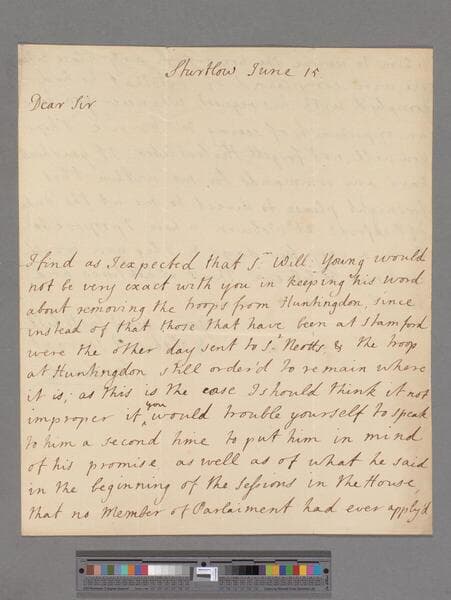 Sturtlow June 15
Dear Sir
I find as I expected that Sr Will: Young would
not be very exact with you in keeping his word
about removing the troops from Huntingdon, since
instead of that those that have been at Stamford
were the other day sent to St Neotts, & the troop
at Huntingdon still order'd to remain where
it is; as this is the case I should think it not
improper if you would trouble yourself to speak
to him a second time to put him in mind
of his promise, as well as of what he said
in the beginning of the sessions in the House,
that no Member of Parlaiment had ever apply'd